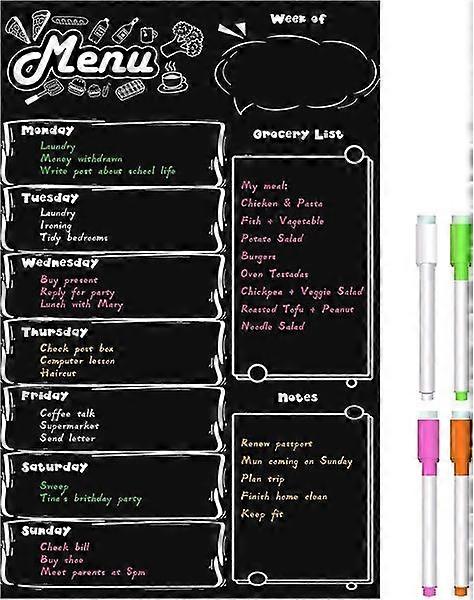 Menu
Week of
Monday
Laundry
Money withdrawn
Write post about school life
Tuesday
Laundry
Ironing
Tidy bedrooms
Wednesday
Buy present
Reply for party
Lunch with Mary
Thursday
Check post box
Computer lesson
Haircut
Friday
Coffee talk
Supermarket
Send letter
Saturday
Sweep
Tina's brithday party
Sunday
Check bill
Buy shoe
Meet parents at 5pm
Grocery List
My meal:
Chicken & Pasta
Fish + Vagetable
Potato Salad
Burgers
Oven Tostadas
Chickpea + Veggie Salad
Roasted Tofu + Peanut
Noodle Salad
Notes
Renew passport
Mum coming on Sunday
Plan trip
Finish home clean
Keep fit